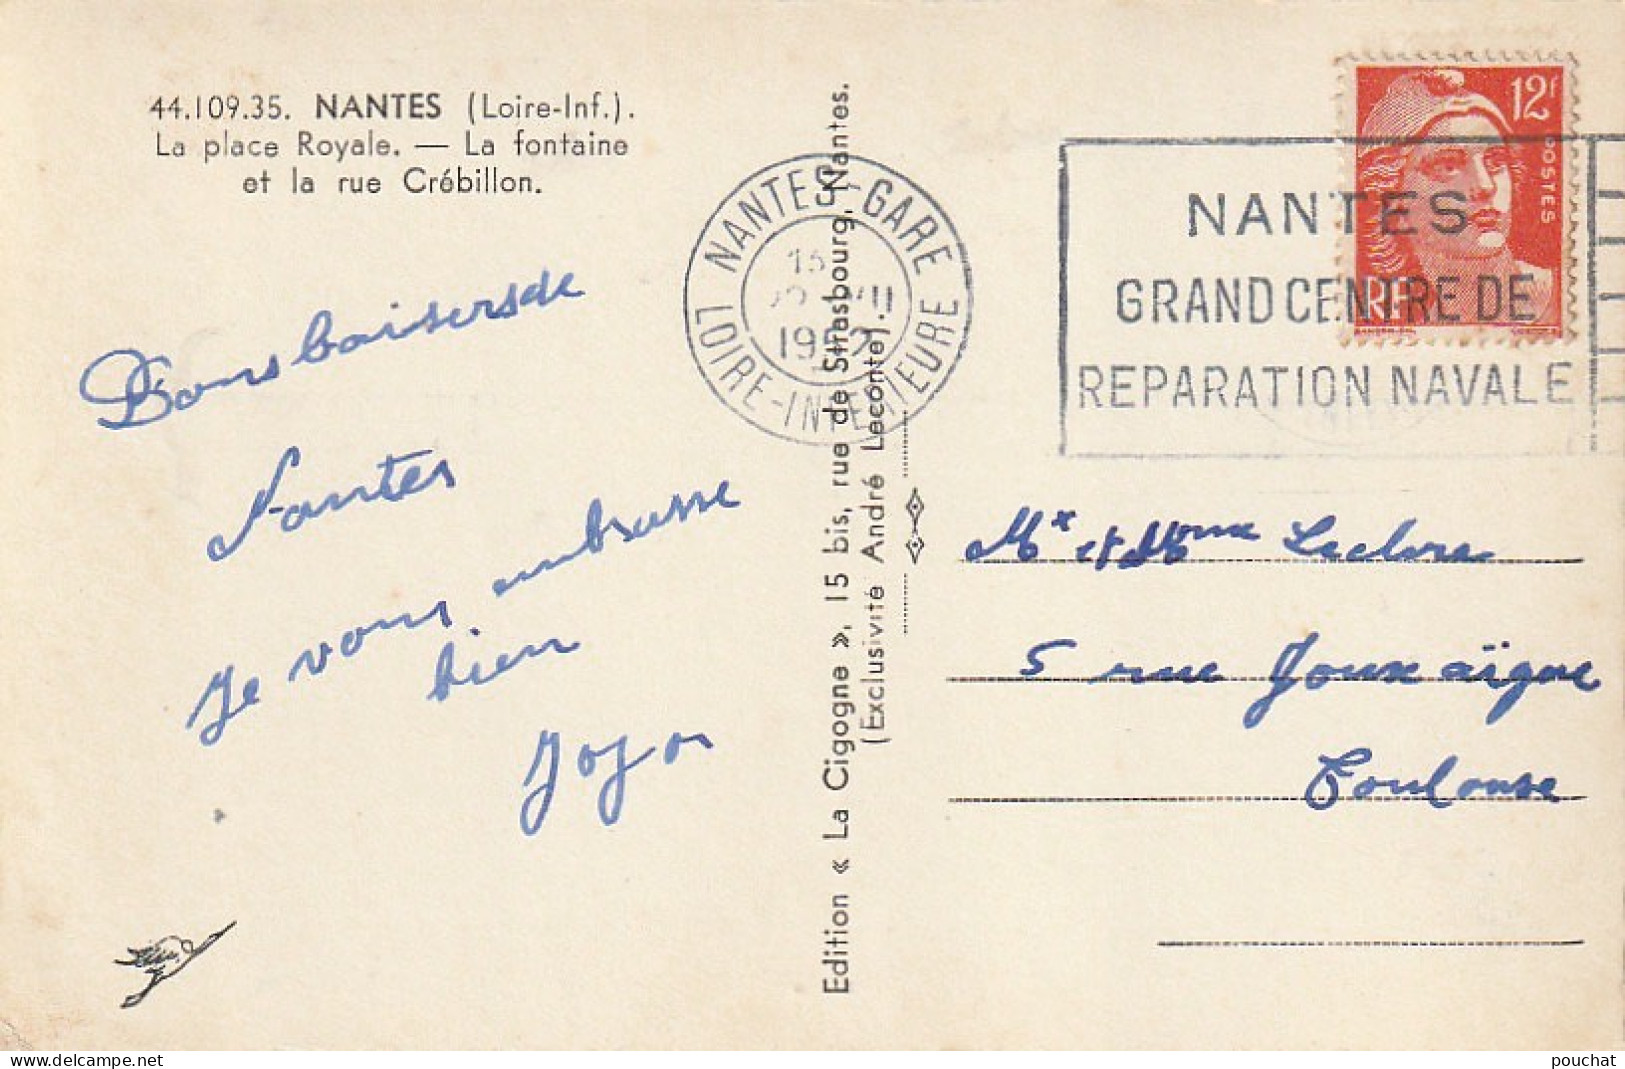 44.109.35. NANTES (Loire-Inf.).
La place Royale. — La fontaine
et la rue Crébillon.
Bons baisers de
Nantes
Je vous embrasse
bien
Jojo
Edition « La Cigogne », 15 bis, rue de Strasbourg, Nantes.
(Exclusivité André Leconte).
NANTES-GARE
1952
LOIRE-INFERIEURE
12F
POSTES
RF
NANTES
GRAND CENTRE DE
REPARATION NAVALE
Mr et Mme Leclere
5 rue Jouxaïgue
Toulouse
delcampe.net
pouchat